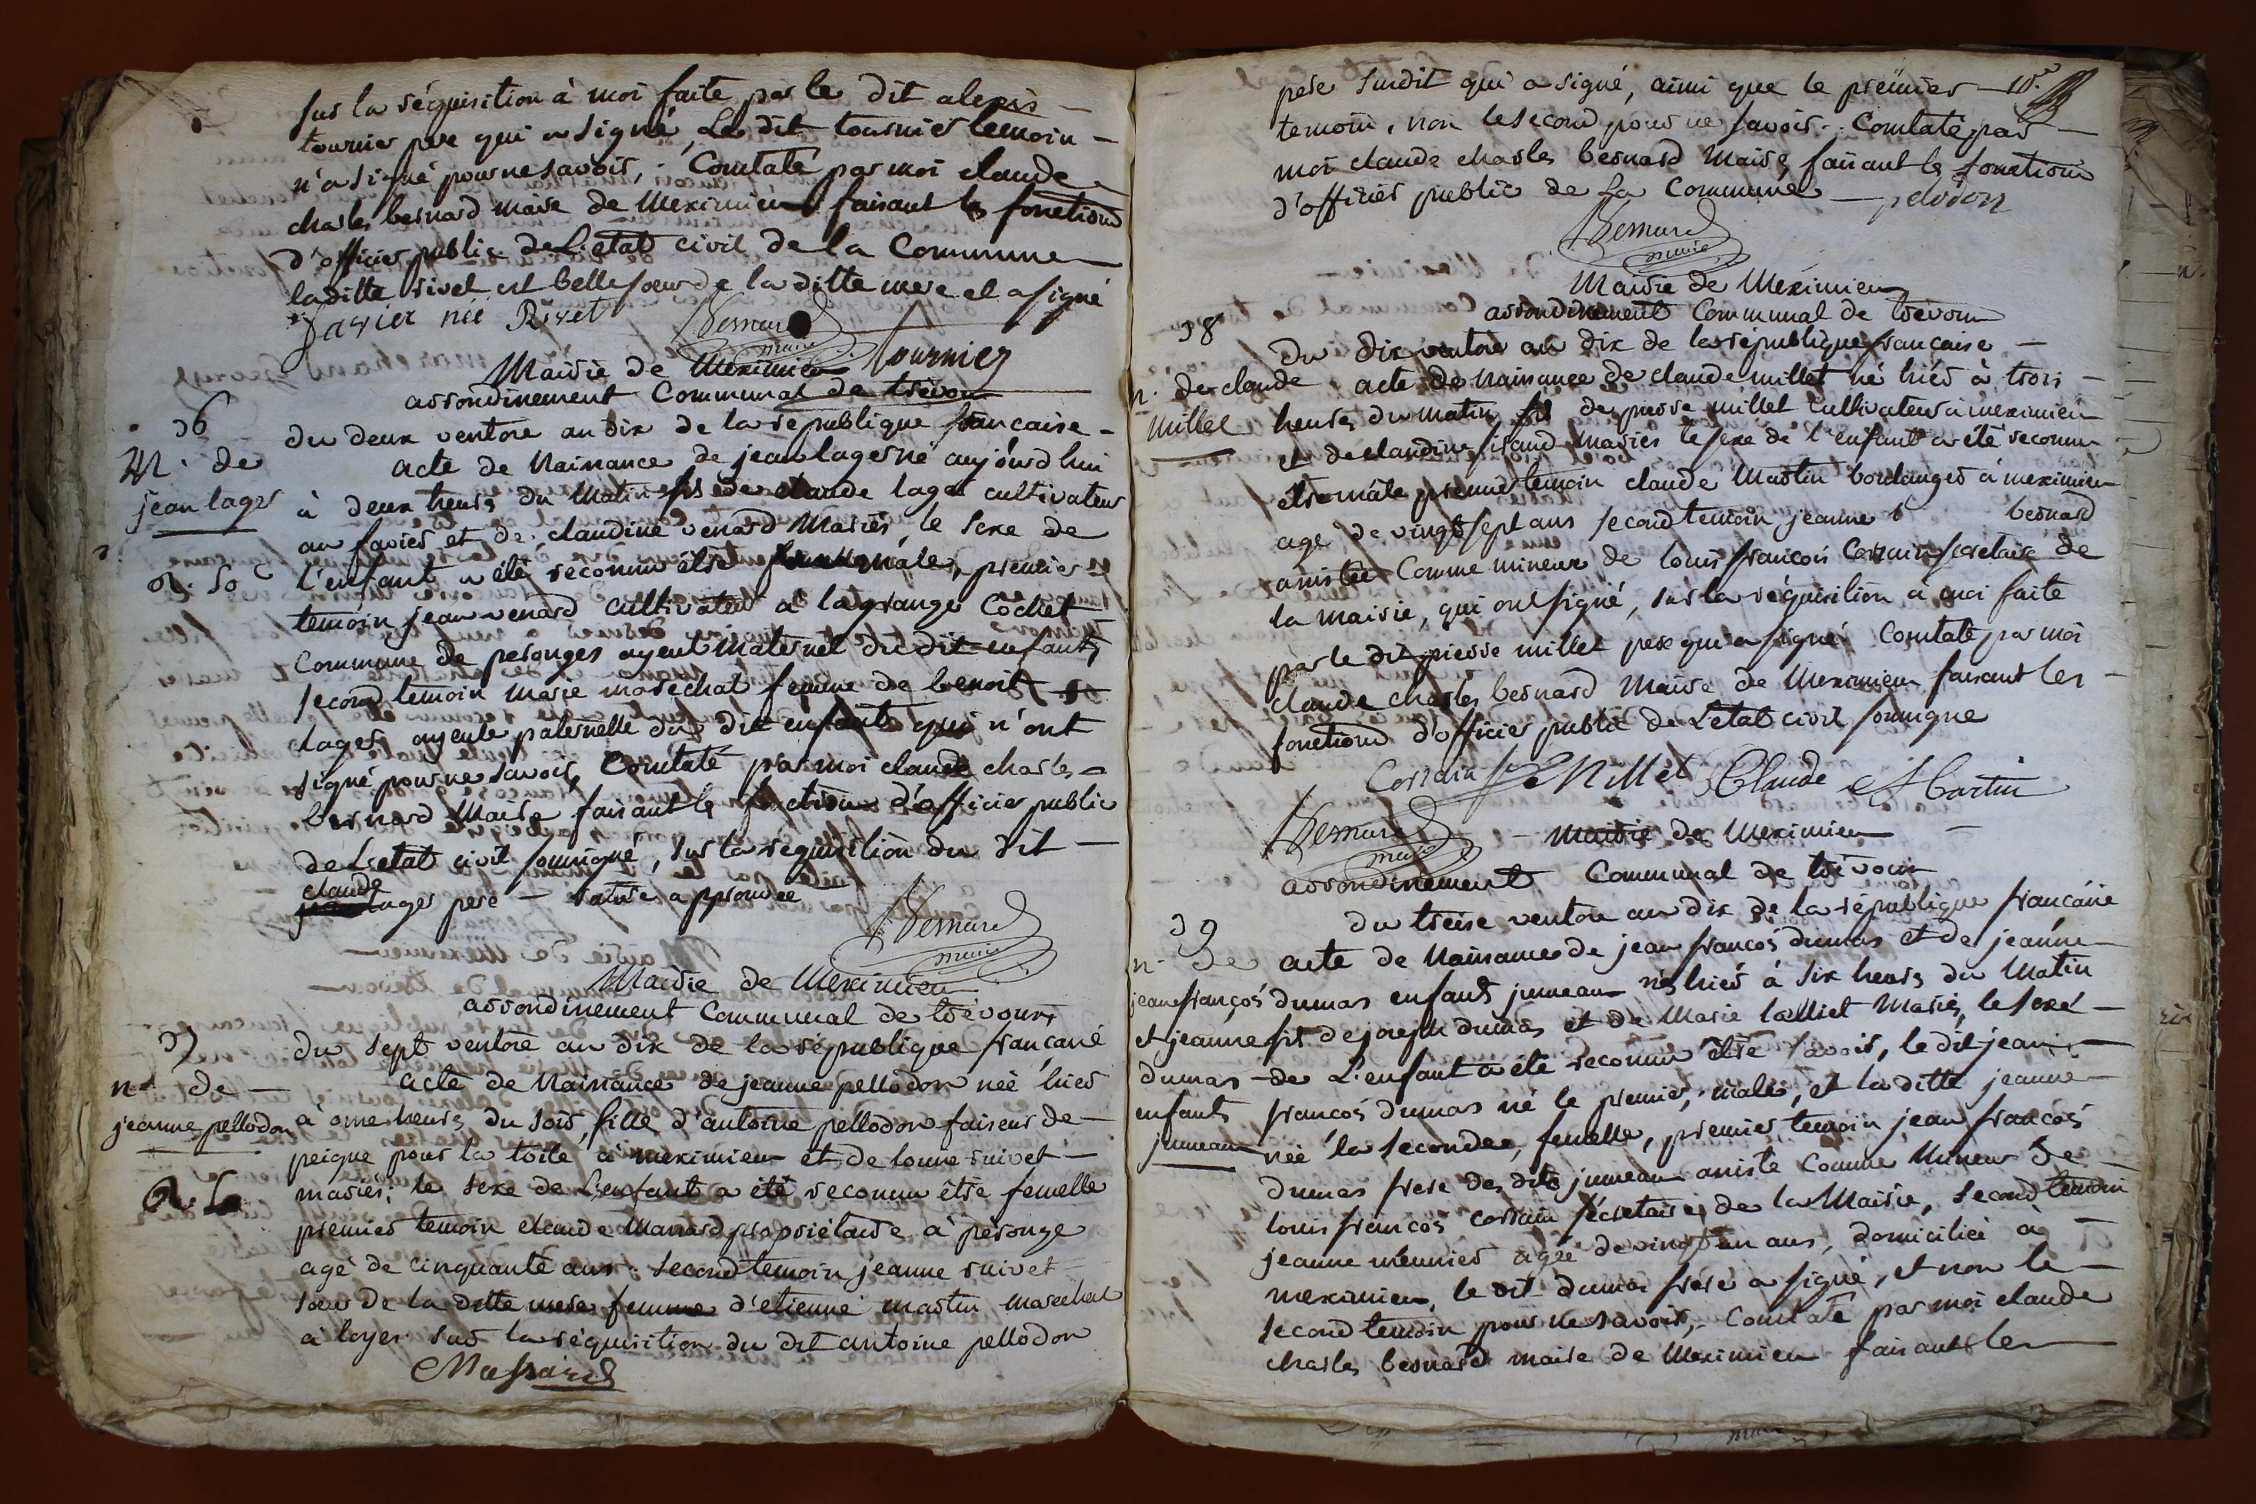 sur la réquisition à moi faite par le dit alexis
tournier pere qui a signé, Le dit tournier temoin
n'a signé pour ne savoir, Constaté par moi claude
charles bernard maire de Meximieux faisant les fonctions
d'officier public de L'etat civil de la Commune
laditte rivet est belle soeur de la ditte mere et a signé
favier née Rivet Bernard maire tournier
Mairie de Meximieux
arrondinement Communal de trévoux
36
N. de
jean lager
du deux ventose an dix de la république francaise
acte de Naissance de jean lager né aujourd'hui
à deux heures du Matin fils de claude lager cultivateur
au favier et de claudine venard Mariés le sexe de
l'enfant a été reconnu être male, premier
temoin jean venard cultivateur à la grange Cochet
Commune de perouges ayeul maternel du dit enfant,
second temoin Marie marechal femme de benoit
lager ayeule paternelle du dit enfant qui n'ont
signé pour ne savoir, Constaté par moi claude charles
bernard Maire faisant les fonctions d'officier public
de L'etat civil soussigné, sur la requisition du dit
claude
lager pere - rature approuvée
Bernard
maire
Mairie de Meximieux
arrondinement Communal de trévoux
37
n. de
jeanne pellodon
du sept ventose an dix de la république francaise
acte de Naissance de jeanne pellodon née hier
à onze heures du soir, fille d'antoine pellodon faiseur de
peigne pour la toile à meximieux et de louise ruivet
mariés; le sexe de L'enfant a été reconnu être femelle
premier temoin claude Massard propriétaire à pérouge
agé de cinquante ans. second temoin jeanne ruivet
soeur de la ditte mere femme d'etienne martin marechal
à loyes sur la réquisition du dit antoine pellodon
Massard
pere susdit qui a signé, ainsi que le premier
temoin, non le second pour ne savoir. Constaté par
moi claude charles bernard Maire faisant les fonctions
d'officier public de La Commune pelodon
Bernard
maire
Mairie de Meximieux
arrondinement Communal de trévoux
38
n. de claude
millet
du dix ventose an dix de la république francaise
acte de Naissance de claude millet né hier à trois
heures du matin, fils de pierre millet cultivateur à meximieux
et de claudine mariés le sexe de l'enfant a été reconnu
être mâle premier temoin claude Martin boulanger à meximieux
agé de vingt sept ans second temoin jeanne bernard
assistée Comme mineure de louis francois Corrain secretaire de
la mairie, qui ont signé, sur la réquisition à moi faite
par le dit pierre millet pere qui a signé Constaté par moi
claude charles bernard Maire de Meximieux faisant les
fonctions d'officier public de L'etat civil soussigné
Corrain Millet Claude Martin
Bernard
maire
Mairie de Meximieux
arrondinement Communal de trévoux
39
n. de
jean françois
et jeanne
dumas
enfants
jumeaux
du treize ventose an dix de la république francaise
acte de Naissance de jean francois dumas et de jeanne
dumas enfants jumeaux nés hier à six heures du Matin
fils de joseph dumas et de Marie Mariés, le sexe
de L'enfant a été reconnu être savoir, le dit jean
francois dumas né le premier, male, et la ditte jeanne
née la seconde, femelle, premier temoin jean francois
dumas frere des dits jumeaux assisté Comme Mineur de
louis francois corrain sécretaire de la Mairie, second temoin
jeanne meunier agée de vingt un ans, domiciliée à
meximieux, le dit dumas frere a signé, et non le
second temoin pour ne savoir, Constaté par moi claude
charles bernard maire de Meximieux faisant les